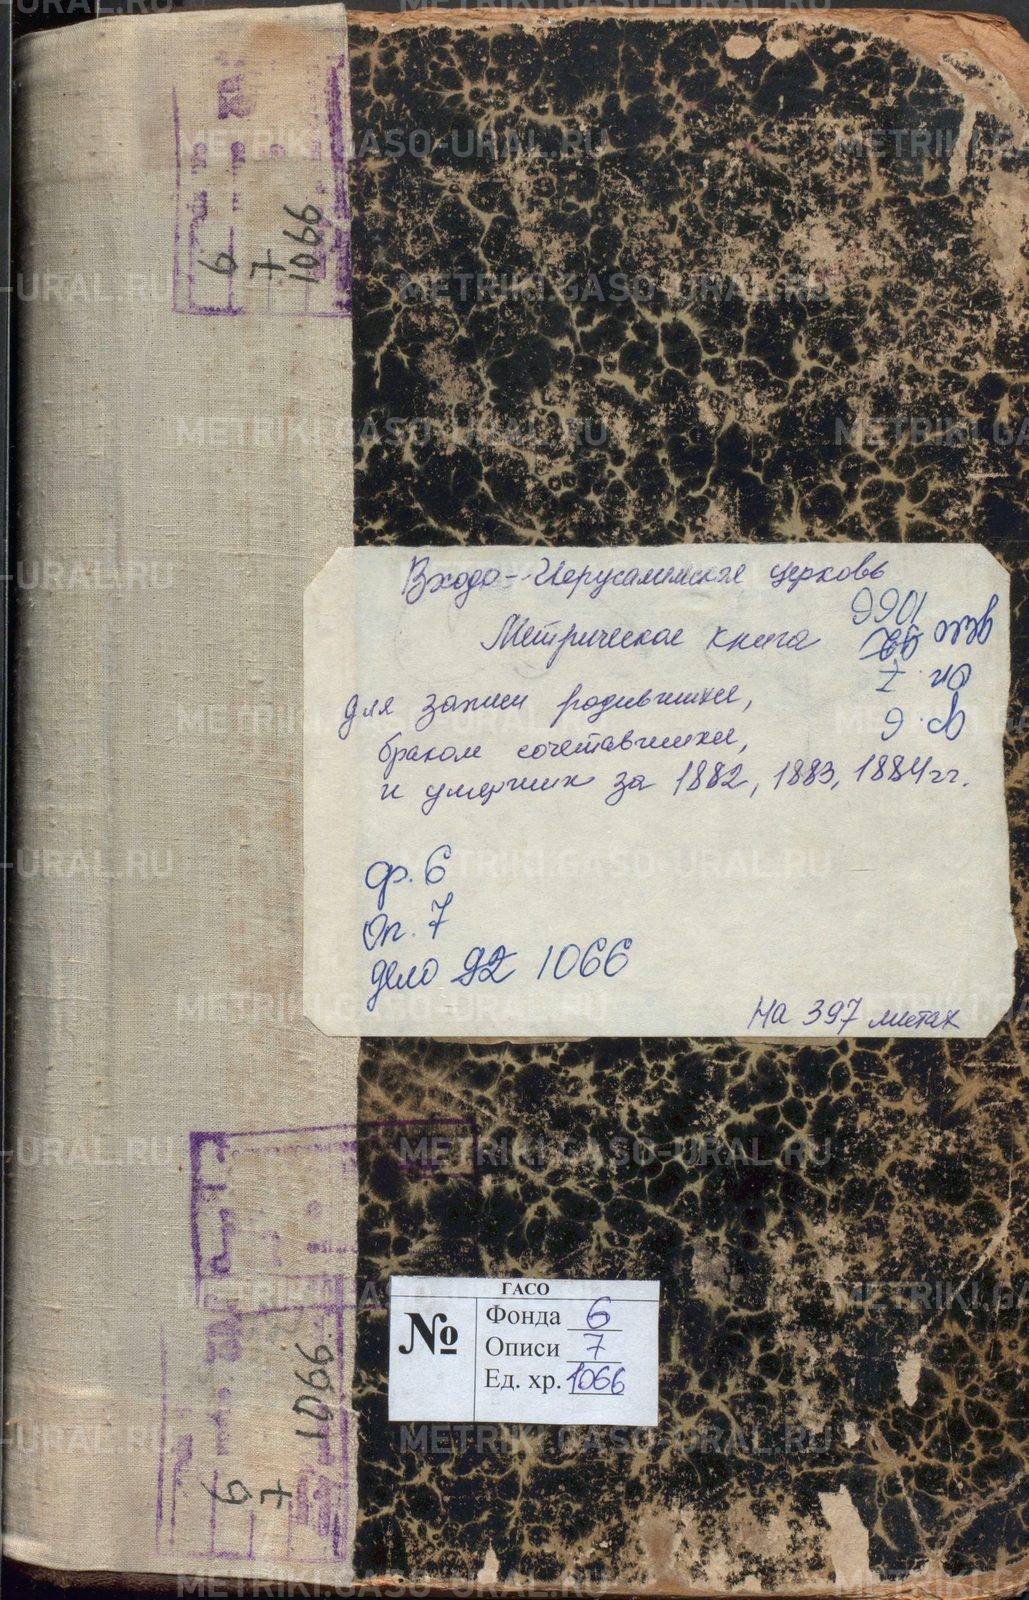 6
7
1066
Входо-Иерусалимская церковь
Метрическая книга
для записи родившихся,
браком сочетавшихся,
и умерших за 1882, 1883, 1884 гг.
ф. 6
оп. 7
дело 92 1066
ф. 6
оп. 7
дело 92 1066
На 397 листах
ГАСО
№
Фонда 6
Описи 7
Ед. хр. 1066
6
7
1066
METRIKI.GASO-URAL.RU